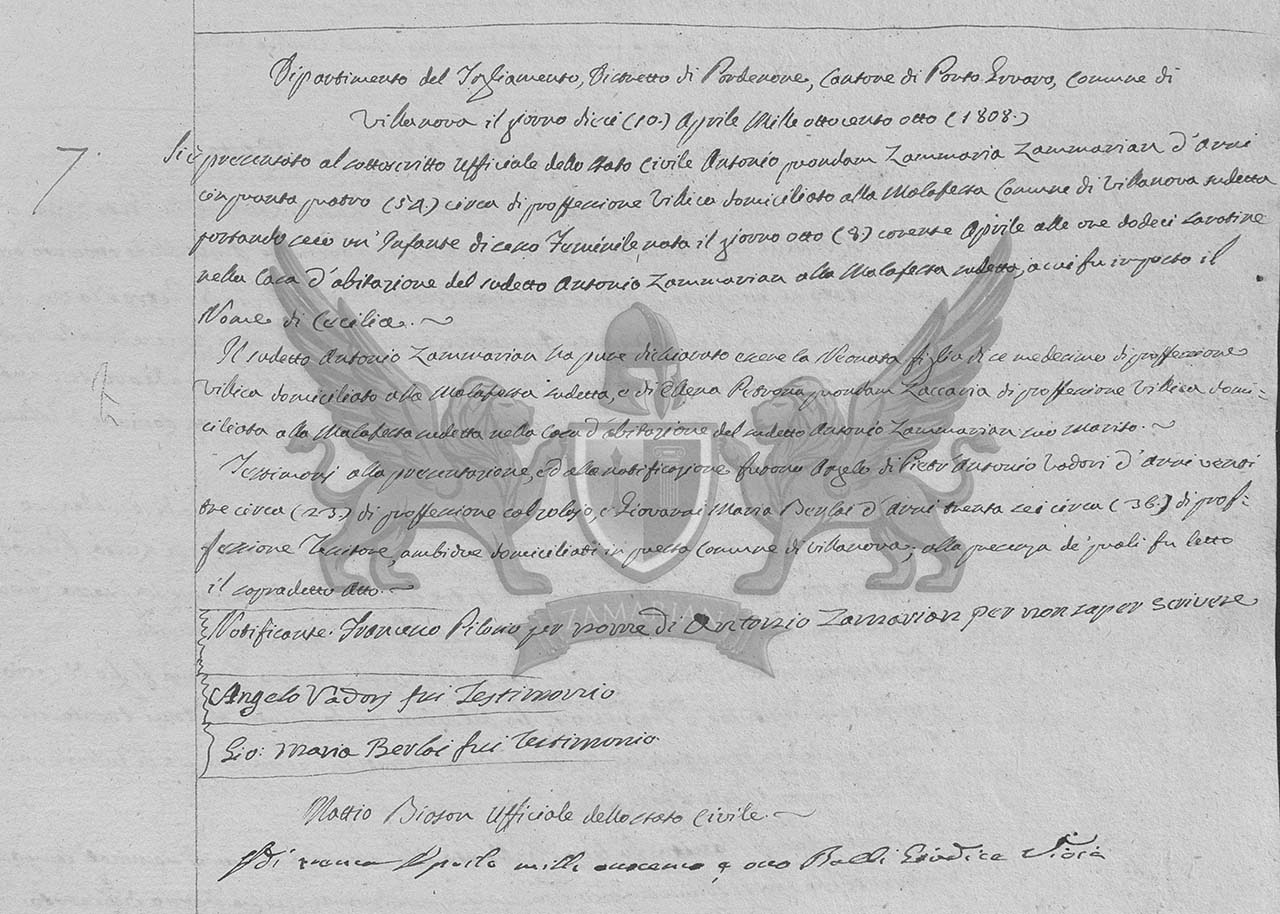 Dipartimento del Tagliamento, Distretto di Pordenone, Cantone di Porto Gruaro, Comune di
Villanova il giorno dieci (10.) Aprile Mille ottocento otto (1808.)
7. Si è presentato al sottoscritto Ufficiale dello stato Civile Antonio quondam Zammaria Zammarian d'anni
cinquanta quatro (54.) circa di proffessione Villica domiciliato alla Malafesta Comune di Villanova sudetta
portando seco un' Infante di sesso Feminile, nata il giorno otto (8.) corente Aprile alle ore dodeci
nella Casa d'abitazione del sudetto Antonio Zammarian alla Malafesta sudetta, a cui fu imposto il
Nome di Cecilia.
Il sudetto Antonio Zammarian ha pure dichiarato essere la Neonata figlia di se medesimo di proffessione
Villica domiciliato alla Malafesta sudetta, e di Ellena quondam Zaccaria di proffessione Villica domi-
ciliata alla Malafesta sudetta nella Casa d'abitazione del sudetto Antonio Zammarian suo Marito.
Testimonj alla presentazione, ed alla notificazione furono Angelo di Pietr' Antonio Vadori d'anni venti
tre circa (23.) di proffessione calzolajo, e Giovanni Maria Berloi d'Anni trenta sei circa (36.) di prof-
fessione Tessitore, ambidue domiciliati in questa Comune di Villanova; alla presenza de' quali fu letto
il sopradetto Atto.
Notificante. Francesco per nome di Antonio Zamarian per non saper scrivere
Angelo Vadorj fui Testimonio
Gio: Maria Berloi fui Testimonio
ZAMARIAN
Mattio Biason Ufficiale dello stato Civile.
Aprile mille e otto